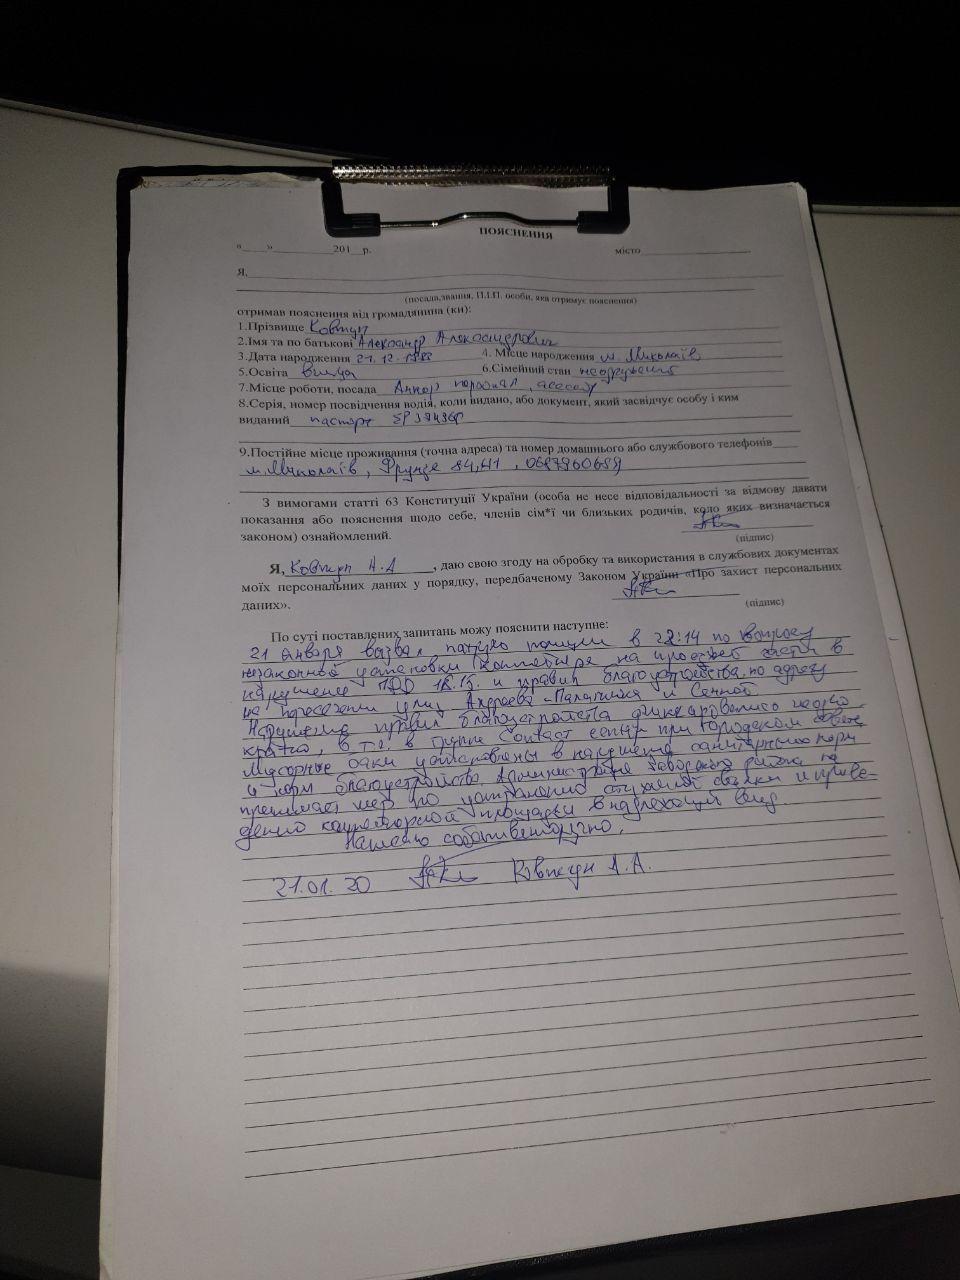 ПОЯСНЕННЯ
«____»__________201__р. місто____________________
Я,
(посада,звання, П.І.П. особи, яка отримує пояснення)
отримав пояснення від громадянина (ки):
1.Прізвище Ковтун
2.Імя та по батькові Александр Александрович
3.Дата народження 21.12.1983 4. Місце народження м. Миколаїв
5.Освіта вища 6.Сімейний стан неодружений
7.Місце роботи, посада
8.Серія, номер посвідчення водія, коли видано, або документ, який засвідчує особу і ким
виданий паспорт
9.Постійне місце проживання (точна адреса) та номер домашнього або службового телефонів
м.Миколаїв, Фрунзе 84,
З вимогами статті 63 Конституції України (особа не несе відповідальності за відмову давати
показання або пояснення щодо себе, членів сім*ї чи близьких родичів, коло яких визначається
законом) ознайомлений.
(підпис)
Я, Ковтун А.А , даю свою згоду на обробку та використання в службових документах
моїх персональних даних у порядку, передбаченому Законом України «Про захист персональних
даних».
(підпис)
По суті поставлених запитань можу пояснити наступне:
21 января вызвал патруль полиции в 22:14 по вопросу
незаконной установки контейнера на проезжей части в
нарушение ПДД и правил благоустройства, по адресу
на пересечении улиц Андреева-Палагнюка и Сенной
Нарушения правил благоустройства фиксировались неодно-
кратно, в т.ч. в группе Contact center при городском совете
Мусорные баки установлены в нарушение санитарных норм
и норм благоустройства. Администрация Заводского района не
принимает мер по устранению стихийной свалки и приве-
дению контейнерной площадки в надлежащий вид.
Написано собственноручно.
21.01.20 Ковтун А.А.